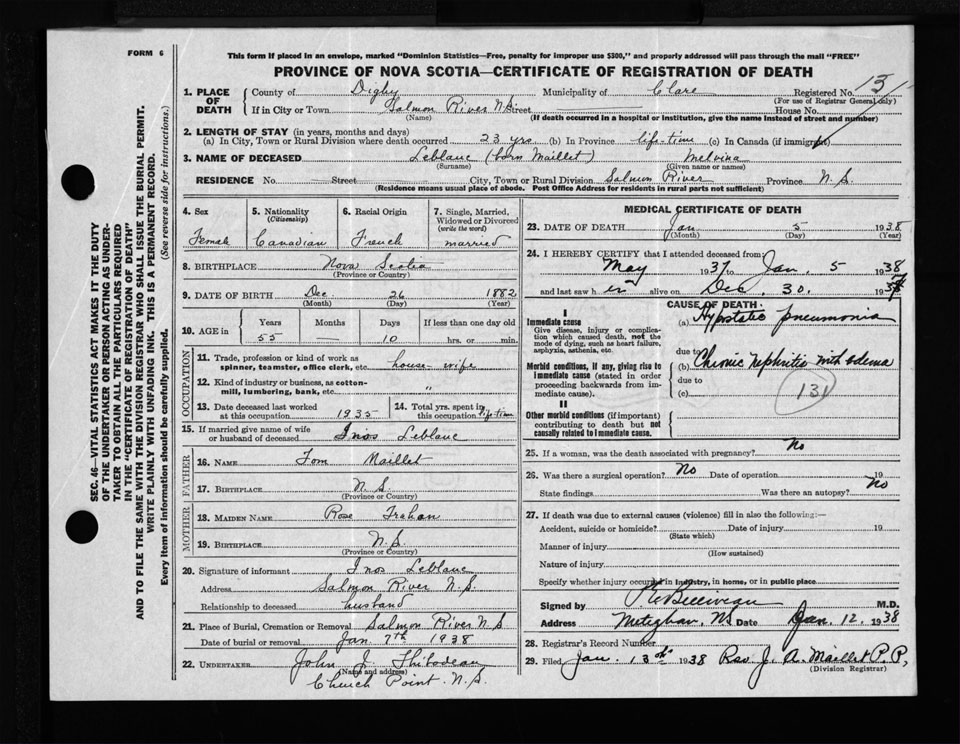 FORM 6
This form if placed in an envelope, marked "Dominion Statistics—Free, penalty for improper use $300," and properly addressed will pass through the mail "FREE"
PROVINCE OF NOVA SCOTIA—CERTIFICATE OF REGISTRATION OF DEATH
SEC. 46—VITAL STATISTICS ACT MAKES IT THE DUTY
OF THE UNDERTAKER OR PERSON ACTING AS UNDER-
TAKER TO OBTAIN ALL THE PARTICULARS REQUIRED
IN THE "CERTIFICATE OF REGISTRATION OF DEATH"
AND TO FILE THE SAME WITH THE DIVISION REGISTRAR WHO SHALL ISSUE THE BURIAL PERMIT.
WRITE PLAINLY WITH UNFADING INK. THIS IS A PERMANENT RECORD.
Every item of information should be carefully supplied. (See reverse side for instructions.)
1. PLACE OF DEATH County of Digby Municipality of Clare Registered No. 151
(For use of Registrar General only)
If in City or Town Salmon River N.S. Street House No.
(Name) (If death occurred in a hospital or institution, give the name instead of street and number)
2. LENGTH OF STAY (in years, months and days)
(a) In City, Town or Rural Division where death occurred 23 yrs (b) In Province life-time (c) In Canada (if immigrant)
3. NAME OF DECEASED Leblanc (born Maillet) Melvina
(Surname) (Given name or names)
RESIDENCE No. Street City, Town or Rural Division Salmon River Province N.S.
(Residence means usual place of abode. Post Office Address for residents in rural parts not sufficient)
4. Sex 5. Nationality (Citizenship) 6. Racial Origin 7. Single, Married, Widowed or Divorced (write the word)
Female Canadian French married
8. BIRTHPLACE Nova Scotia
(Province or Country)
9. DATE OF BIRTH Dec 26 1882
(Month) (Day) (Year)
10. AGE in Years Months Days If less than one day old
55 — 10 hrs. or min.
OCCUPATION
11. Trade, profession or kind of work as spinner, teamster, office clerk, etc. house-wife
12. Kind of industry or business, as cotton-mill, lumbering, bank, etc. "
13. Date deceased last worked at this occupation 1935 14. Total yrs. spent in this occupation life-time
15. If married give name of wife or husband of deceased Inos Leblanc
FATHER
16. NAME Tom Maillet
17. BIRTHPLACE N.S.
(Province or Country)
MOTHER
18. MAIDEN NAME Rose Trahan
19. BIRTHPLACE N.S.
(Province or Country)
20. Signature of informant Inos Leblanc
Address Salmon River N.S.
Relationship to deceased husband
21. Place of Burial, Cremation or Removal Salmon River N.S
Date of burial or removal Jan 7th 1938
22. UNDERTAKER John J. Thibodeau
(Name and address)
Church Point. N.S.
MEDICAL CERTIFICATE OF DEATH
23. DATE OF DEATH Jan 5 1938
(Month) (Day) (Year)
24. I HEREBY CERTIFY that I attended deceased from:
May 1937 to Jan. 5 1938
and last saw h er alive on Dec. 30. 1937
CAUSE OF DEATH
I
Immediate cause
Give disease, injury or complication which caused death, not the mode of dying, such as heart failure, asphyxia, asthenia, etc.
(a) Hypostatic pneumonia
due to
Morbid conditions, if any, giving rise to immediate cause (stated in order proceeding backwards from immediate cause).
(b) Chronic Nephritis with edema
due to
(c) 131
II
Other morbid conditions (if important) contributing to death but not causally related to immediate cause.
25. If a woman, was the death associated with pregnancy? No
26. Was there a surgical operation? No Date of operation 19
State findings Was there an autopsy? No
27. If death was due to external causes (violence) fill in also the following:—
Accident, suicide or homicide? Date of injury 19
(State which)
Manner of injury
(How sustained)
Nature of injury
Specify whether injury occurred in industry, in home, or in public place
Signed by Belliveau M.D.
Address Meteghan, NS Date Jan. 12. 1938
28. Registrar's Record Number
29. Filed Jan. 13th 1938 Rev. J. A. Maillet P.P.,
(Division Registrar)